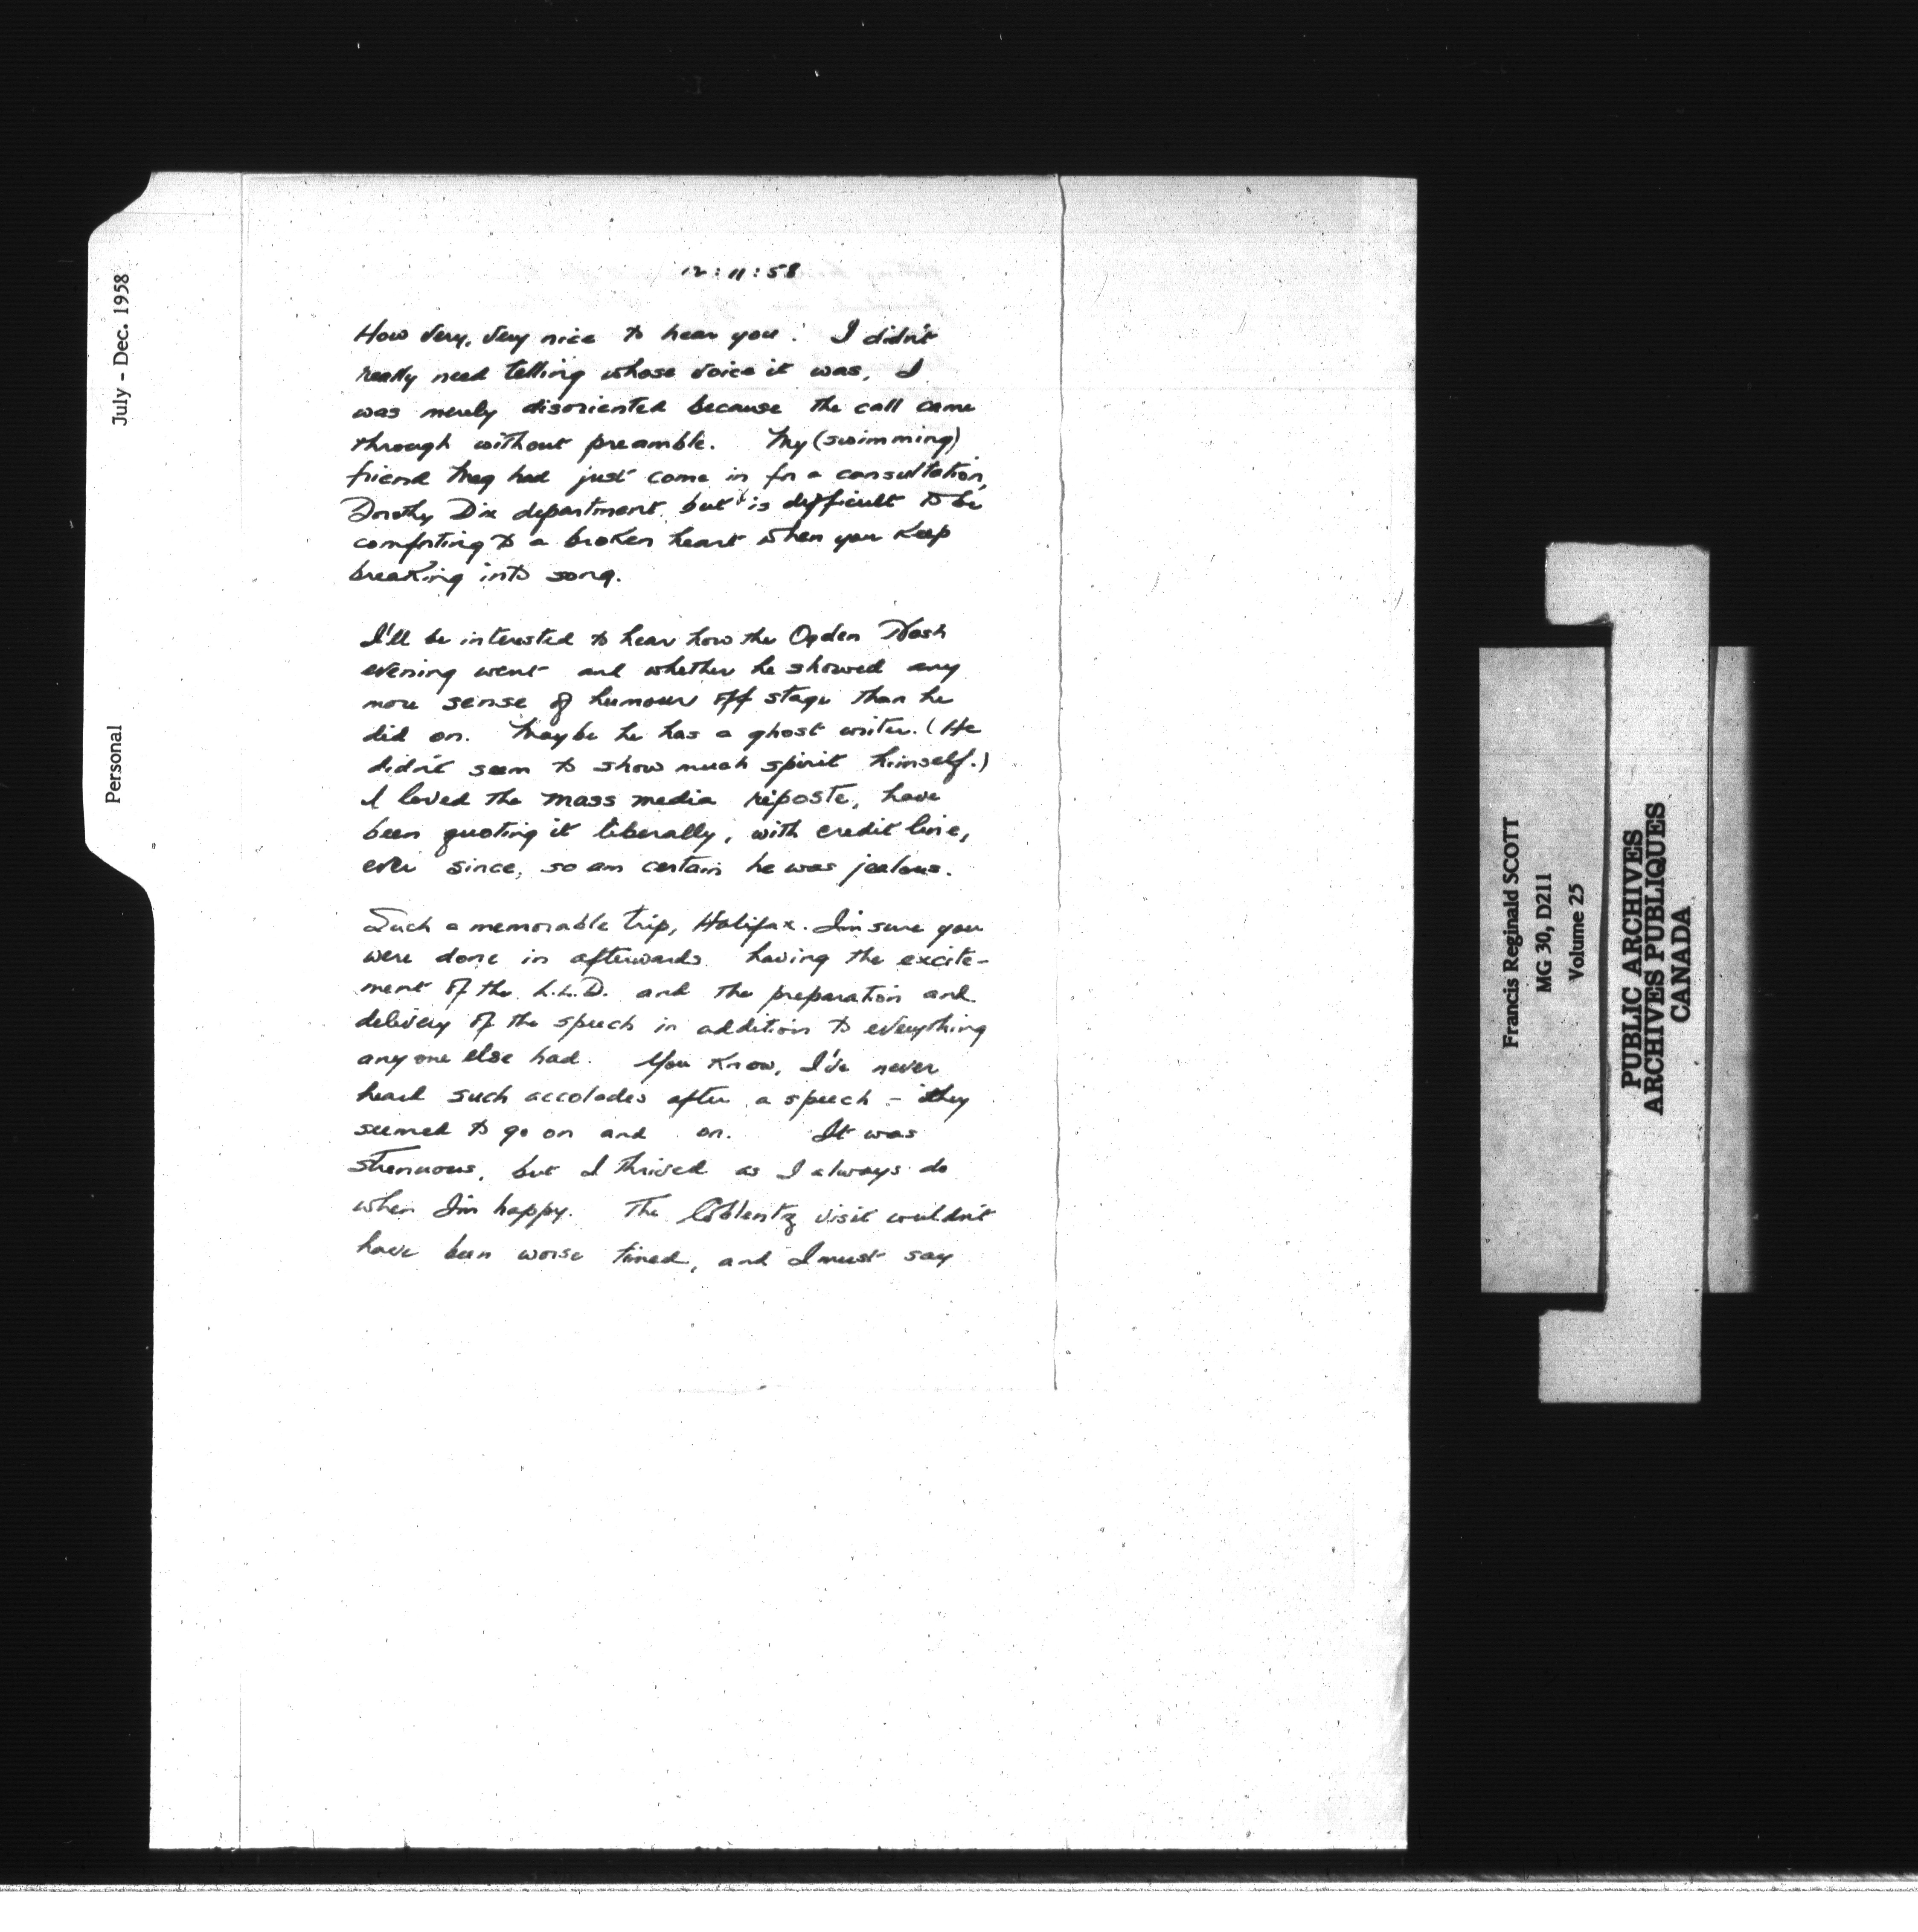 July - Dec. 1958
Personal
12:11:58
How very, very nice to hear you! I didn't
really need telling whose voice it was, I
was merely disoriented because the call came
through without preamble. My (swimming)
friend Meg had just come in for a consultation,
Dorothy Dix department, but it is difficult to be
comforting to a broken heart when you keep
breaking into song.
I'll be interested to hear how the Ogden Nash
evening went and whether he showed any
more sense of humour off stage than he
did on. Maybe he has a ghost writer. (He
didn't seem to show much spirit himself.)
I loved the mass media riposte, have
been quoting it liberally, with credit line,
ever since, so am certain he was jealous.
Such a memorable trip, Halifax. I'm sure you
were done in afterwards having the excite-
ment of the L.L.D. and the preparation and
delivery of the speech in addition to everything
anyone else had. You know, I've never
heard such accolades after a speech - they
seemed to go on and on. It was
strenuous, but I thrived as I always do
when I'm happy. The Coblentz visit couldn't
have been worse timed, and I must say
Francis Reginald SCOTT
MG 30, D211
Volume 25
PUBLIC ARCHIVES
ARCHIVES PUBLIQUES
CANADA